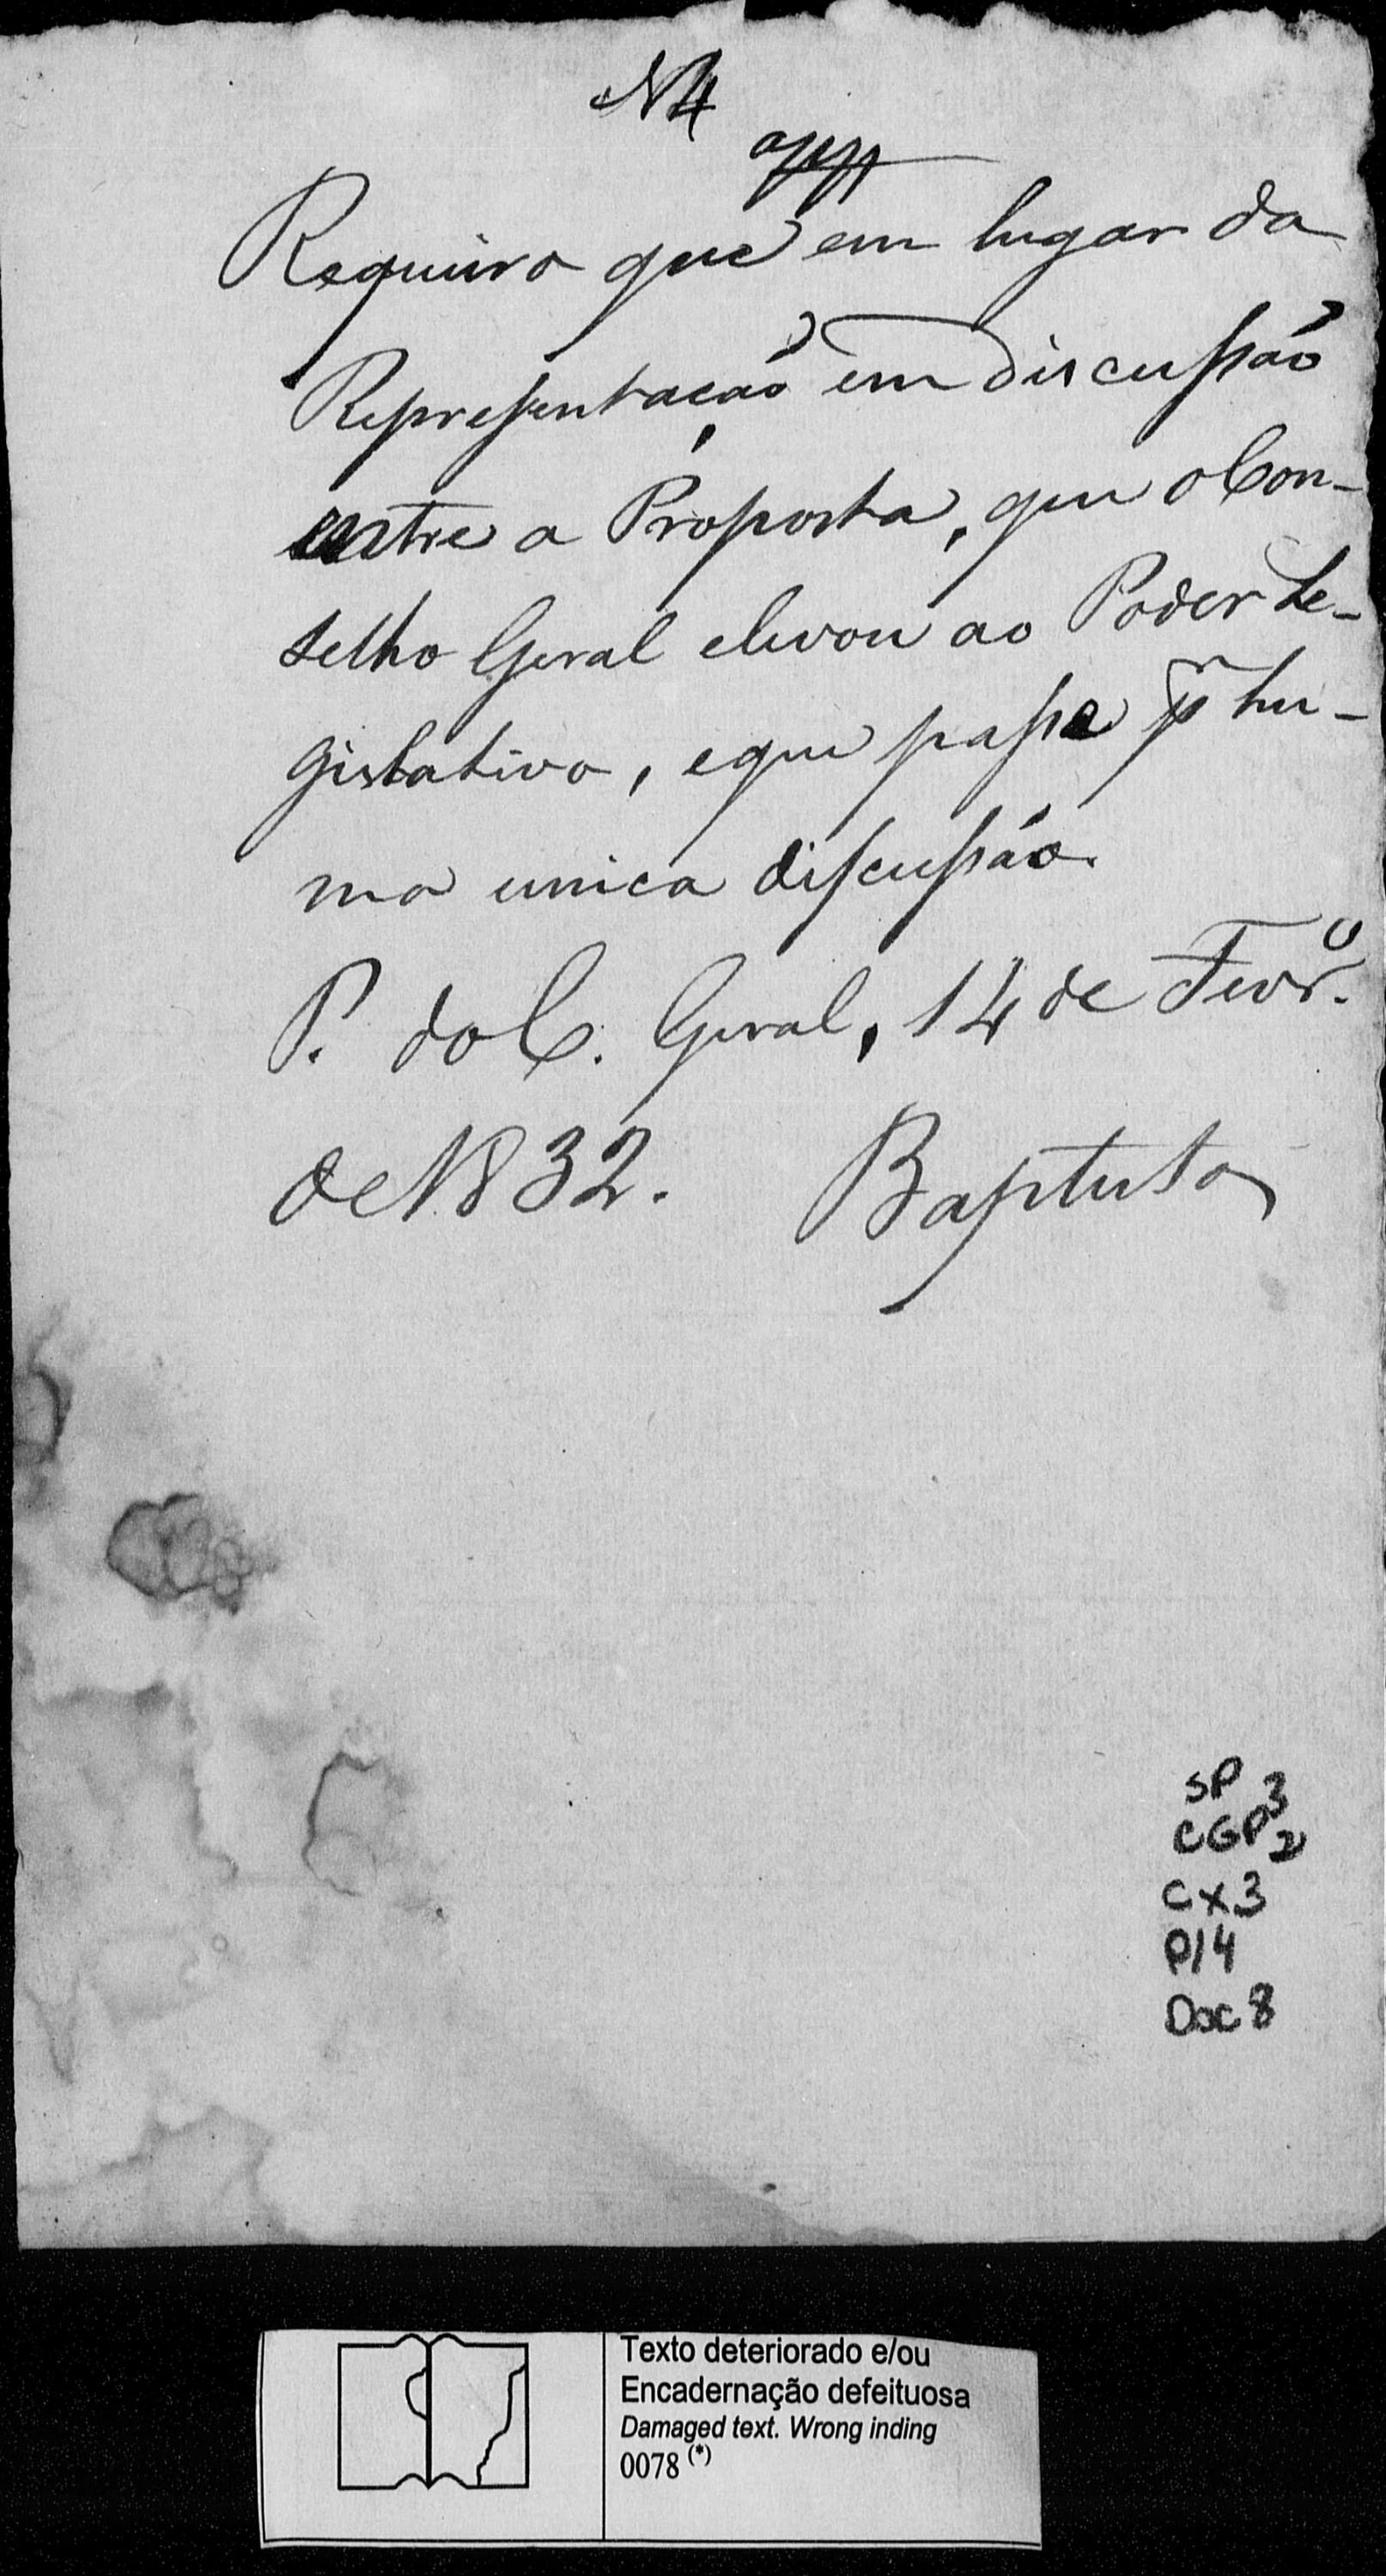 N4
app
Requeiro que em lugar da
Representação em discussão
entre a Proposta, que o Con-
selho Geral elevou ao Poder Le-
gislativo, e que passe pr hu-
ma unica discussão.
P. do C. Geral, 14 de Fevrº.
de 1832. Baptista
SP
CGP3
2
Cx3
P14
Doc 8
Texto deteriorado e/ou
Encadernação defeituosa
Damaged text. Wrong inding
0078 (*)